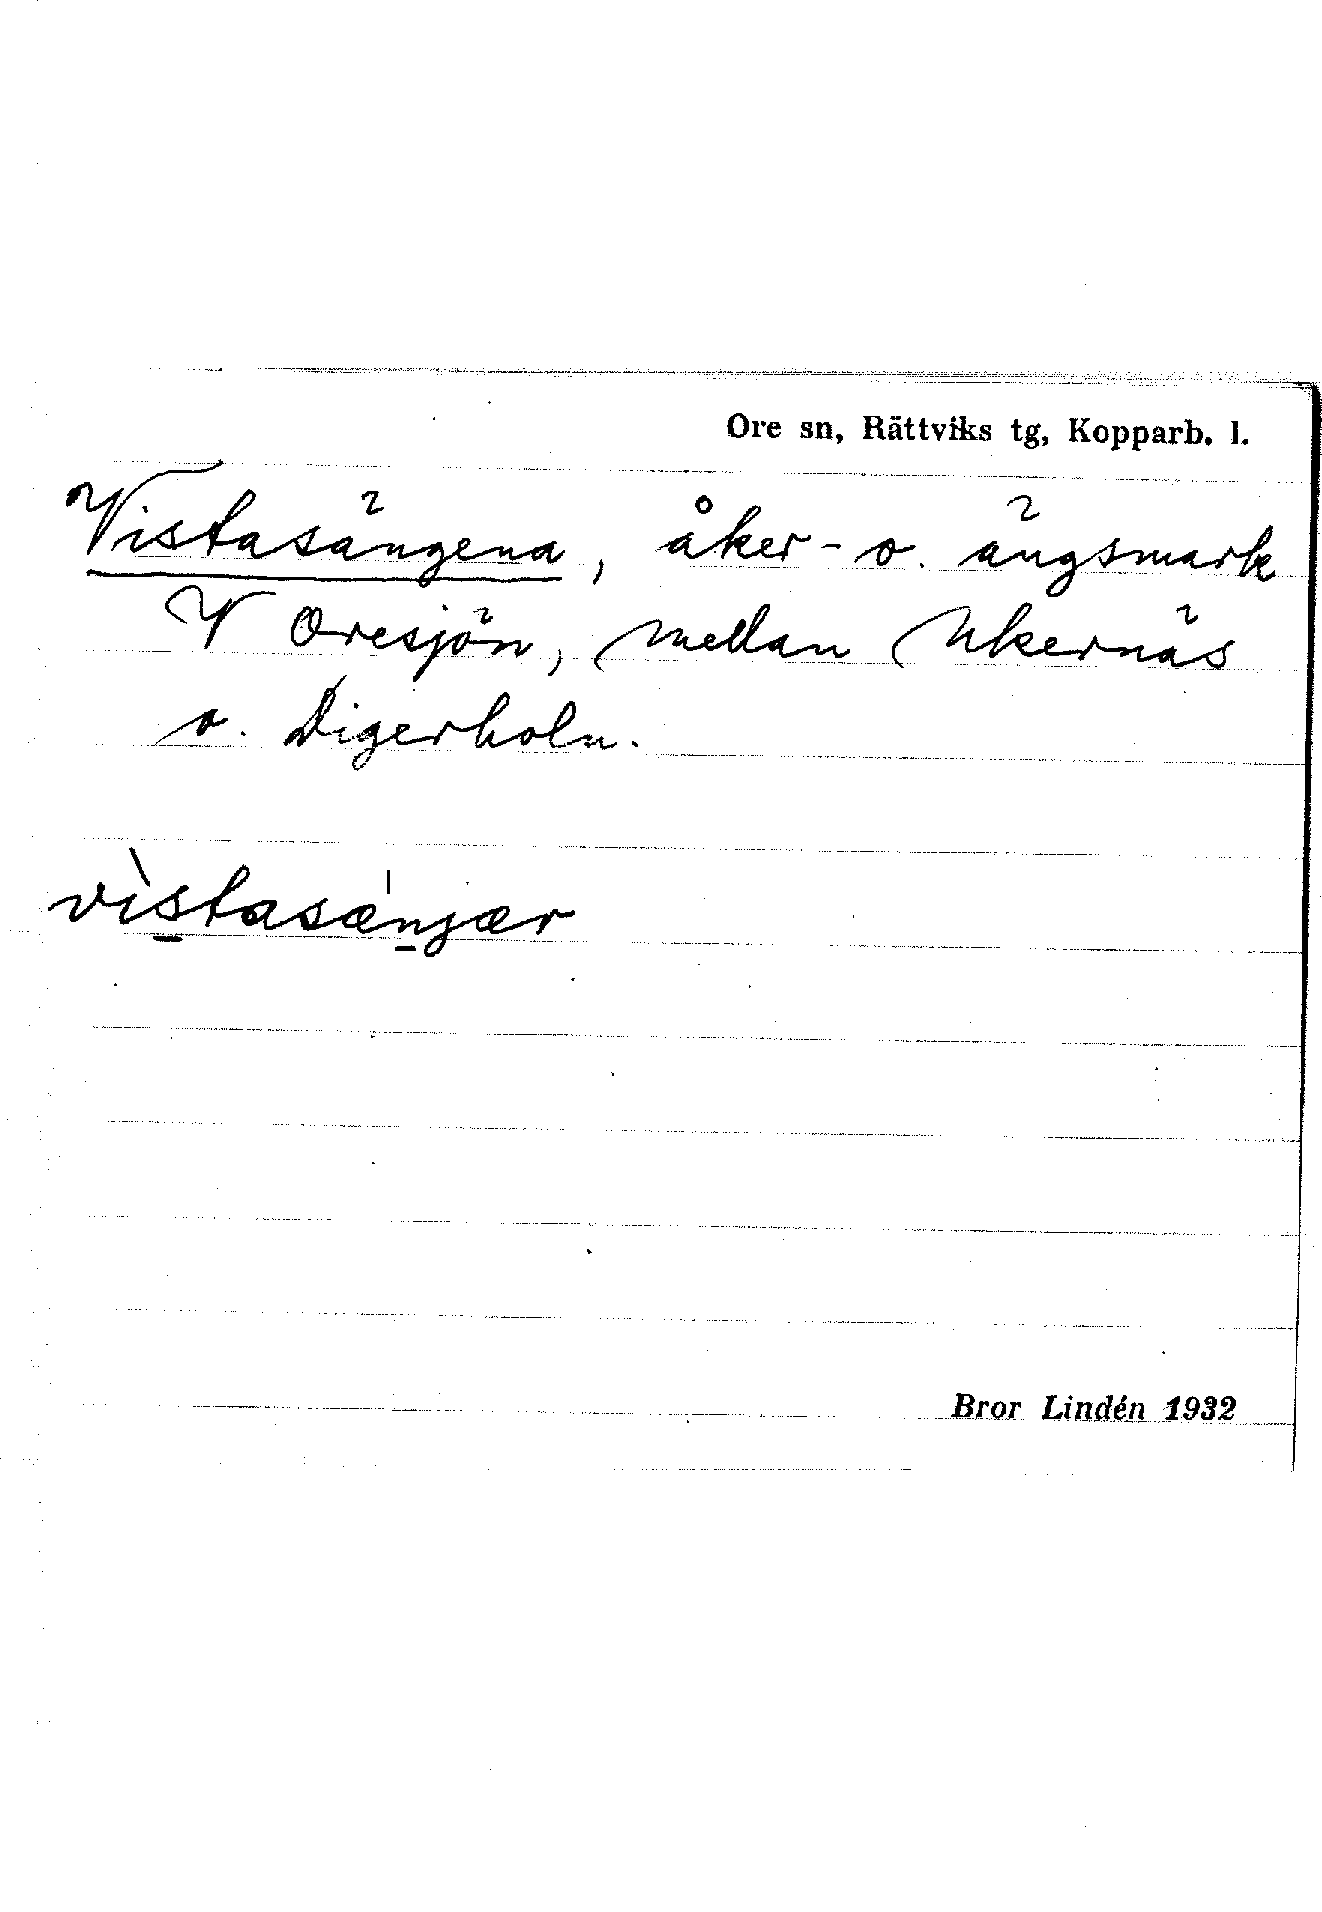 Ore sn, Rättviks tg, Kopparb. l.
Vistasängena, åker- o. ängsmark
V Oresjön, mellan Ukernäs
o. Digerholn.
vìstasænjær
Bror Lindén 1932